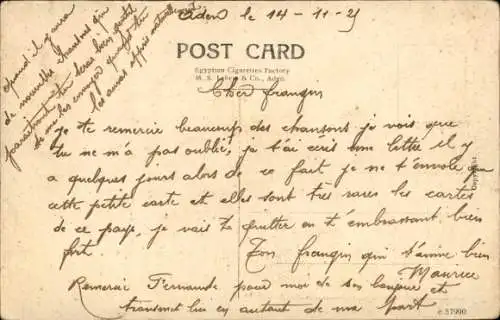 Aden le 14-11-25
POST CARD
Egyptian Cigarettes Factory
& Co., Aden.
Cher frangin
je te remercie beaucoup des chansons je vois que
tu ne m'a pas oublié, je t'ai écris une lettre il y
a quelques jours alors de ce fait je ne t'envoie que
cette petite carte et elles sont très rares les cartes
de ce pays, je vais te quitter en t'embrassant bien
fort.
Ton frangin qui t'aime bien
Maurice
Remercie Fernande pour moi de son bonjour et
transmet lui en autant de ma part
quand il y aura
de nouvelles chansons qui
paraitront tu seras bien gentil
de me les envoyer quand tu
les auras appris
c.57990